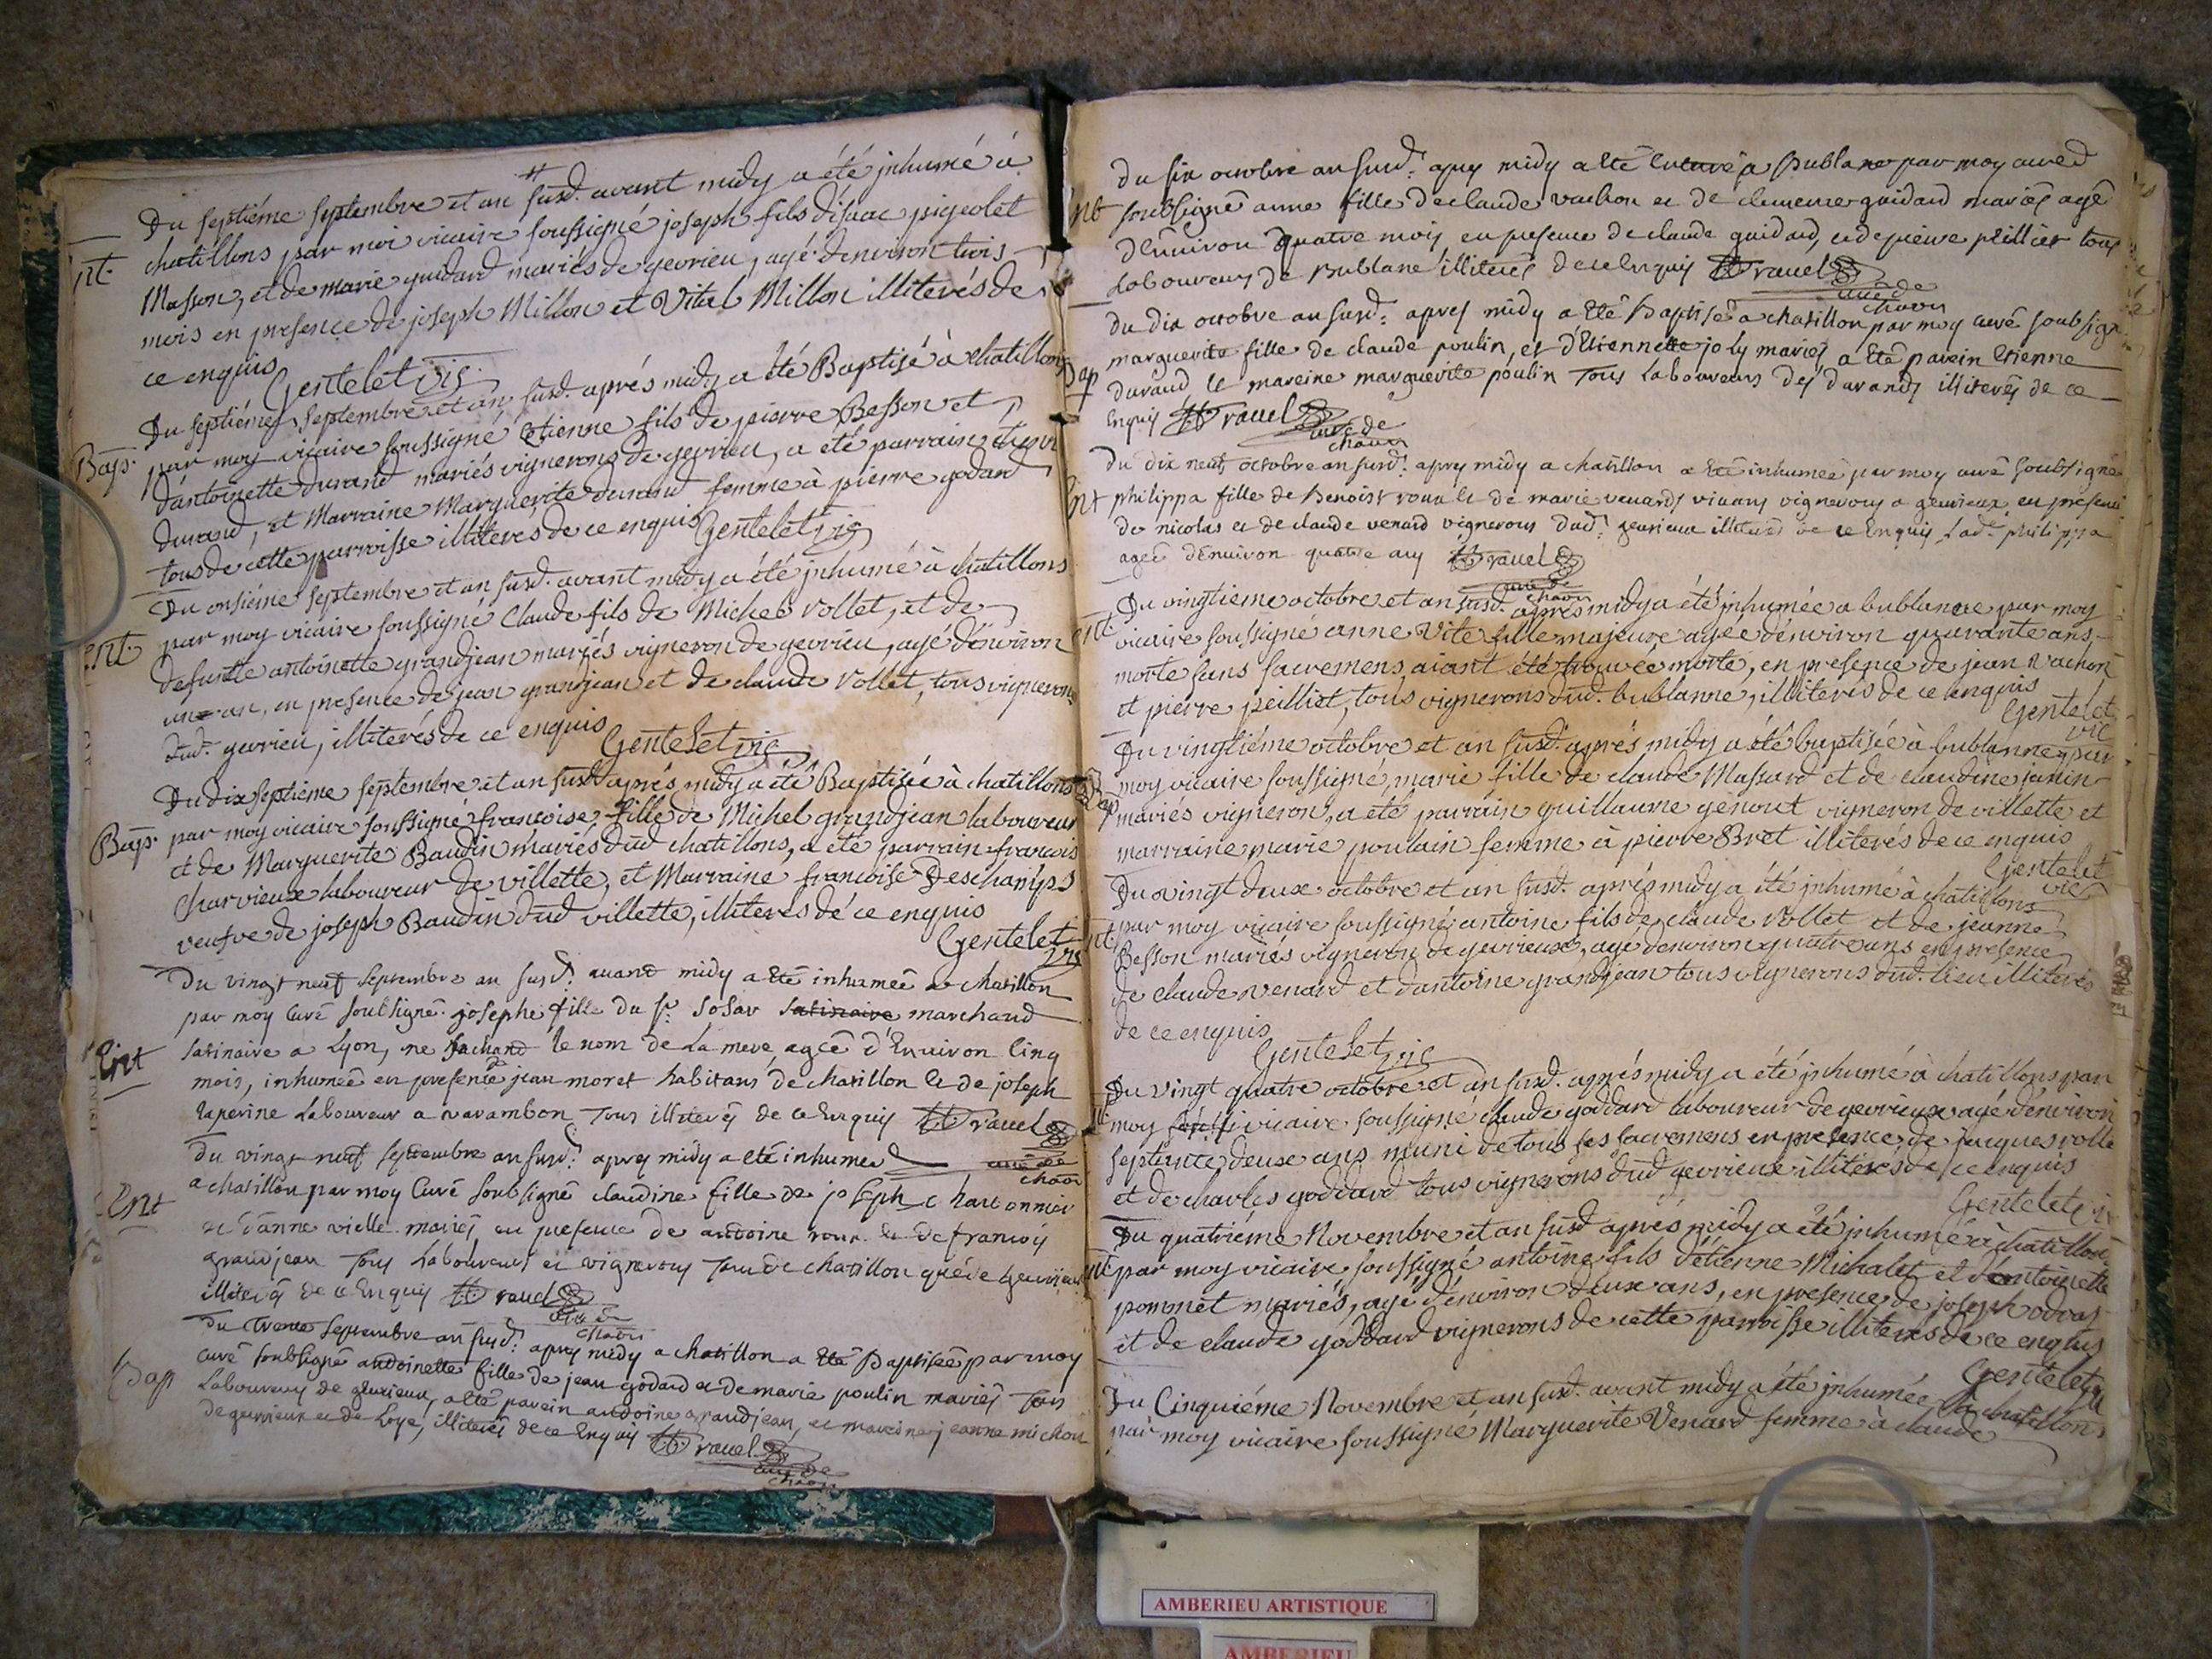 Du septiéme septembre et an susd. avant midy a été jnhumé à
jnt. chatillons par moi vicaire soussigné joseph fils d'isaac pigeolet
Masson, et de marie guidard mariés de gevrieu, agé denviron trois
mois en presence de joseph Millon et Vital Millon illiterés de
ce enquis Gentelet vic
Du septiéme septembre et an susd. aprés midy a été Baptisé à chatillons
Bap. par moy vicaire soussigné Etienne fils de pierre Besson et
d'antoinette durand mariés vignerons de gevrieu, a été parrain
durand, et Marraine Marguerite durand femme à pierre godard
tous de cette parroisse illiteres de ce enquis Gentelet vic
Du onsiéme septembre et an susd. avant midy a été jnhumé à chatillons
jnt. par moy vicaire soussigné Claude fils de Michel vollet, et de
defunte antoinette grandjean mariés vigneron de gevrieu, agé d'environ
un an, en presence de jean grandjean et de claude vollet, tous vignerons
dud. gevrieu, illiterés de ce enquis Gentelet vic
Du dix septiéme septembre et an susd. aprés midy a été Baptisée à chatillons
Bap. par moy vicaire soussigné francoise fille de Michel grandjean laboureur
et de Marguerite Baudin mariés dud chatillons, a été parrain francois
charvieux laboureur de villette, et Marraine francoise Deschamps
veufve de joseph Baudin dud villette, illiteres de ce enquis
Gentelet vic
Du vingt neuf septembre an susd: avant midy a eté inhumeé a chatillon
par moy Curé soubsigné josephe fille du sr sosav satinaire marchand
Ent satinaire a Lyon, ne sachand le nom de La mere, ageé d'Environ Cinq
mois, inhumeé en presence de jean moret habitans de chatillon et de joseph
laperine Laboureur a varambon Tous illiterés de ce Enquis ravel
curé de
chaon
Du vingt neuf septembre an susd: apres midy a eté inhumeé
Ent a chatillon par moy Curé soubsigné claudine fille de joseph charbonnier
et d'anne vielle mariés en presence de antoine roux et de francois
grandjean Tous Laboureurs et vignerons Tant de chatillon que de gevrieux
illiterés de ce Enquis ravel
curé de
chaon
Du Trente septembre an susd: apres midy a chatillon a Eté Baptiseé par moy
Bap curé soubsigné antoinette fille de jean godard et de marie poulin mariés Tous
Laboureurs de gevrieux, a eté parein antoine grandjean, et mareine jeanne michon
de gevrieux et de Loye, illiterés de ce Enquis ravel
curé de
chaon
Du six octobre an susd: apres midy a eté Enterré a Bublane par moy curé
Ent soubsigné anne fille de claude vachon et de clemence guidard mariés agé
d'Environ quatre mois en presence de claude guidard, et de pierre peillier tous
Laboureurs de Bublane illiterés de ce Enquis ravel
curé de
chaon
Du dix octobre an susd: apres midy a Eté Baptiseé a chatillon par moy curé soubsigné
marguerite fille de claude poulin, et d'Etiennette joly mariés a Eté parein Etienne
Bap durand et mareine marguerite poulin Tous Laboureurs des durands illiterés de ce
Enquis ravel
curé de
chaon
Du dix neuf octobre an susd: apres midy a chatillon a Eté inhumeé par moy curé soubsigné
Ent philippa fille de Benoist roux et de marie venard vivans vignerons a gevrieux en presence
de nicolas et de claude venard vignerons dud: gevrieux illiterés de ce Enquis, Lad: philippa
ageé d'Environ quatre ans ravel
curé de
chaon
Du vingtieme octobre et an susd. aprés midy a été jnhumée a bublanne par moy
jnt. vicaire soussigné anne Vite fille majeure, agée d'environ quarante ans,
morte sans sacremens, aiant été trouvée morte, en presence de jean vachon
et pierre peilliet, tous vignerons dud. bublanne, illiterés de ce enquis
Gentelet
vic
Du vingtiéme octobre et an susd. aprés midy a été baptisée à bublanne par
Bap moy vicaire soussigné, marie fille de claude Massard et de claudine janin
mariés vigneron, a été parrain guillaume genoud vigneron de villette et
marraine marie poulain femme à pierre Bret illiterés de ce enquis
Gentelet
vic
Du vingt deux octobre et an susd. aprés midy a été jnhumé à chatillons
jnt par moy vicaire soussigné antoine fils de claude vollet et de jeanne
Besson mariés vigneron de gevrieux, agé denviron quatre ans en presence
de claude venard et d'antoine grandjean tous vignerons dud. lieu illiterés
de ce enquis
Gentelet vic
Du vingt quatre octobre et an susd. aprés midy a été jnhumé à chatillons par
moy vicaire soussigné claude goddard laboureur de gevrieux agé d'environ
septante deux ans muni de tous ses sacremens en presence de jacques volle
et de charles goddard tous vignerons dud gevrieux illiterés de ce enquis
Gentelet
Du quatriéme Novembre et an susd aprés midy a été jnhumé à chatillons
jnt par moy vicaire soussigné antoine fils d'etienne Michalet et d'antoinette
pommet mariés, agé d'environ deux ans, en presence de joseph odras
et de claude goddard vignerons de cette parroisse illiterés de ce enquis
Gentelet
Du Cinquiéme Novembre et an susd. avant midy a été jnhumée à chatillons
par moy vicaire soussigné Marguerite Venard femme à claude
AMBERIEU ARTISTIQUE
AMBERIEU